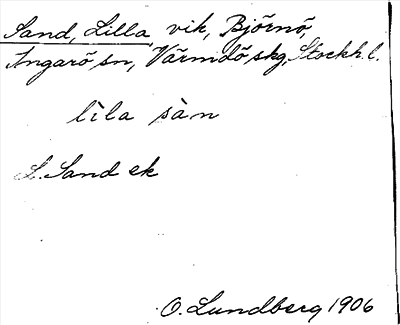 Sand, Lilla vik, Björnö,
Ingarö sn, Värmdö skg, Stockh. l.
lìla sàn
L. Sand ek
O. Lundberg 1906